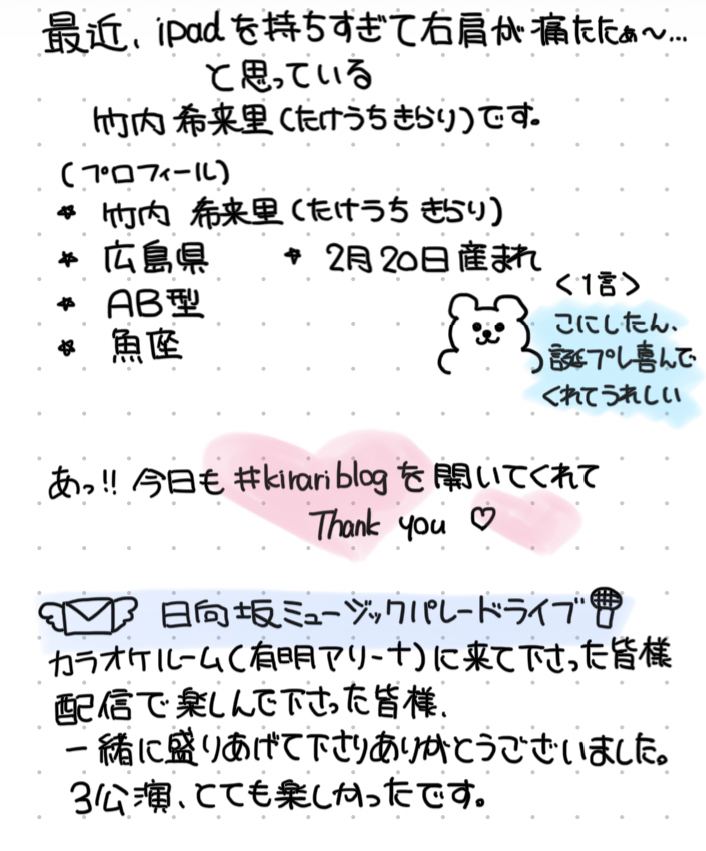 最近、ipadを持ちすぎて右肩が痛たたぁ〜...
と思っている
竹内 希来里(たけうちきらり)です。
(プロフィール)
☆ 竹内 希来里(たけうち きらり)
☆ 広島県 ☆ 2月20日産まれ
☆ AB型
☆ 魚座
<1言>
こにしたん、
誕プレ喜んで
くれてうれしい
あっ!! 今日も #kirariblog を開いてくれて
Thank you ♡
日向坂ミュージックパレードライブ
カラオケルーム(有明アリーナ)に来て下さった皆様
配信で楽しんで下さった皆様、
一緒に盛りあげて下さりありがとうございました。
3公演、とても楽しかったです。